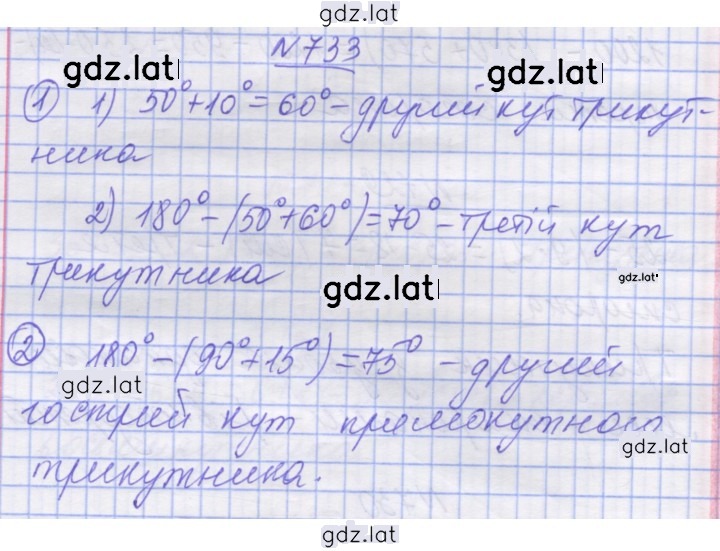 gdz.lat
№733
gdz.lat
① 1) 50°+10°=60°-другий кут трикут-
ника
2) 180°-(50°+60°)=70°-третій кут
трикутника
gdz.lat
gdz.lat
② 180°-(90°+15°)=75° - другий
gdz.lat
гострий кут прямокутного
gdz.lat
трикутника.
gdz.lat